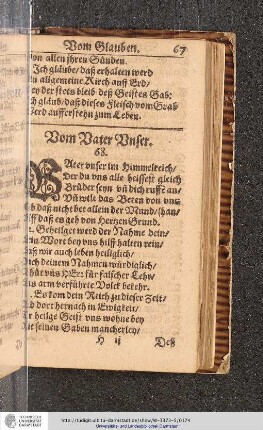 Vom Glauben. 67
von allen jhren Sünden.
Jch gläube/ daß erhalten werd
allgemeine Kirch auff Erd/
bey der stets bleib deß Geistes Gab:
gläub/ daß dieses Fleisch vom Grab
Werd aufferstehn zum Leben.
Vom Vater Vnser.
68.
VAter vnser im Himmelreich/
Der du vns alle heissest gleich
Brüder seyn vñ dich ruffē an/
Vñ wilt das Beten von vns
daß nicht bet allein der Mund/ (han/
daß es geh von Hertzen Grund.
Geheilget werd der Nahme dein/
Wort bey vns hilff halten rein/
wir auch leben heiliglich/
deinem Nahmen würdiglich/
vns HErr für falscher Lehr/
arm verführte Volck bekehr.
Es kom dein Reich zu dieser Zeit/
dort hernach in Ewigkeit/
heilge Geist vns wohne bey
seinen Gaben mancherley/
H ij Deß
UNIVERSITÄTS- UND LANDESBIBLIOTHEK DARMSTADT
Universitäts- und Landesbibliothek Darmstadt